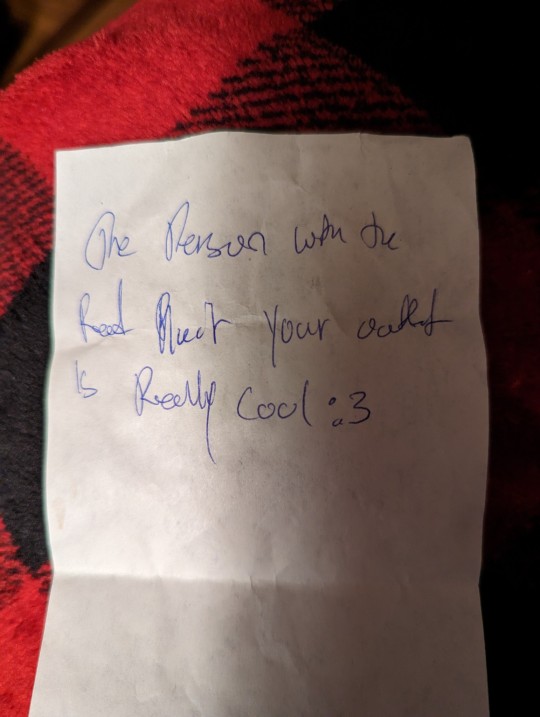 The Person with the
Your outfit
is Really Cool :3